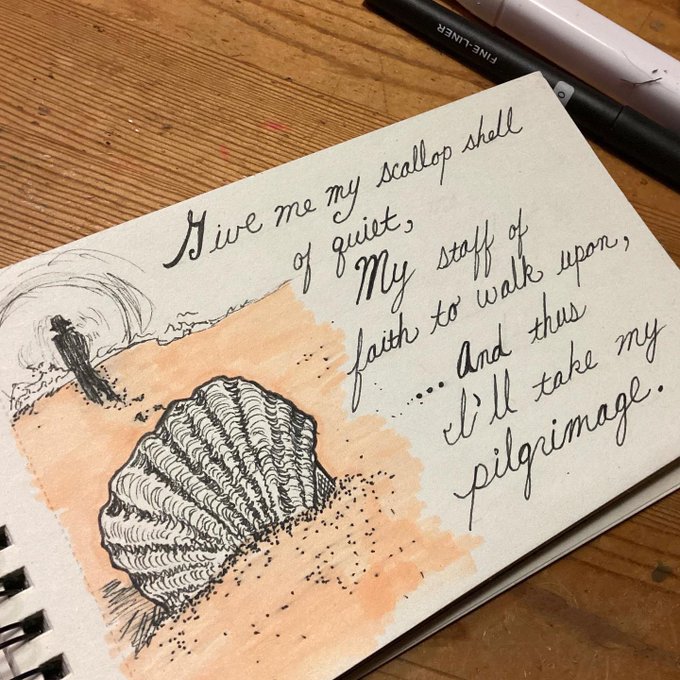 Give me my scallop shell
of quiet,
My staff of
faith to walk upon,
... And thus
I'll take my
pilgrimage.
FINE-LINER